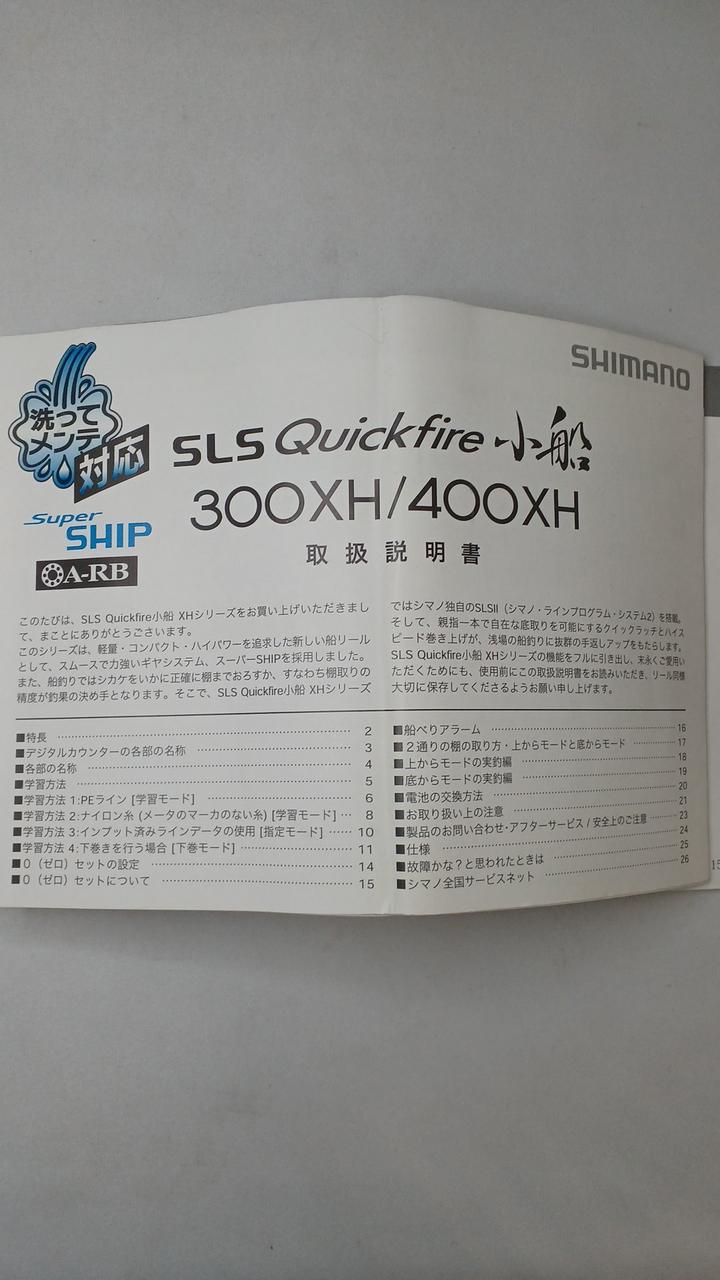 SHIMANO
洗って
メンテ
対応
SLS Quickfire 小船
300XH/400XH
Super
SHIP
A-RB
取扱説明書
このたびは、SLS Quickfire小船 XHシリーズをお買い上げいただきまし
て、まことにありがとうございます。
このシリーズは、軽量・コンパクト・ハイパワーを追求した新しい船リール
として、スムースで力強いギヤシステム、スーパーSHIPを採用しました。
また、船釣りではシカケをいかに正確に棚までおろすか、すなわち棚取りの
精度が釣果の決め手となります。そこで、SLS Quickfire小船 XHシリーズ
ではシマノ独自のSLSII（シマノ・ラインプログラム・システム2）を搭載。
そして、親指一本で自在な底取りを可能にするクイックラッチとハイス
ピード巻き上げが、浅場の船釣りに抜群の手返しアップをもたらします。
SLS Quickfire小船 XHシリーズの機能をフルに引き出し、末永くご愛用い
ただくためにも、使用前にこの取扱説明書をお読みいただき、リール同様
大切に保存してくださるようお願い申し上げます。
■特長 2
■デジタルカウンターの各部の名称 3
■各部の名称 4
■学習方法 5
■学習方法 1:PEライン [学習モード] 6
■学習方法 2:ナイロン糸 (メータのマーカのない糸) [学習モード] 8
■学習方法 3:インプット済みラインデータの使用 [指定モード] 10
■学習方法 4:下巻きを行う場合 [下巻モード] 11
■0（ゼロ）セットの設定 14
■0（ゼロ）セットについて 15
■船べりアラーム 16
■2通りの棚の取り方・上からモードと底からモード 17
■上からモードの実釣編 18
■底からモードの実釣編 19
■電池の交換方法 20
■お取り扱い上の注意 21
■製品のお問い合わせ・アフターサービス / 安全上のご注意 23
■仕様 24
■故障かな？と思われたときは 25
■シマノ全国サービスネット 26
15